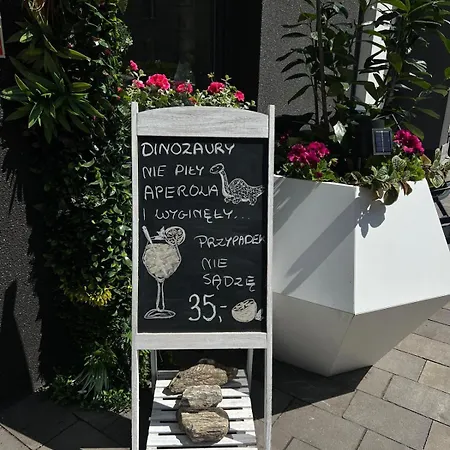 DINOZAURY
NIE PIŁY
APEROLA
I WYGINĘŁY...
PRZYPADEK
NIE
SĄDZĘ
35,-